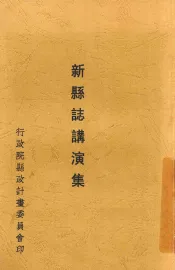 新縣誌講演集
行政院縣政計畫委員會印